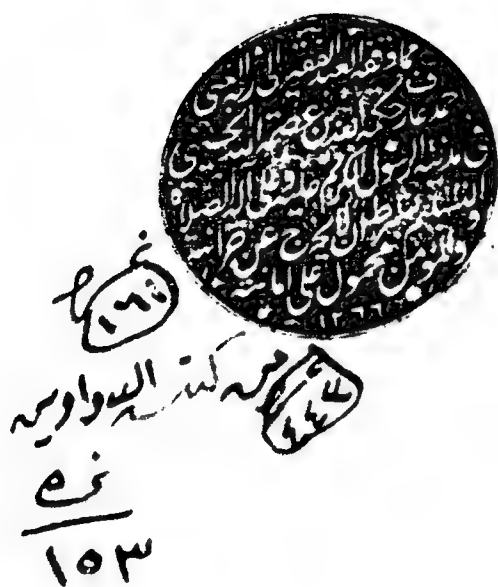 مما وقفه العبد الفقير الى ربه الغني
احمد عارف حكمة الله بن عصمة الله الحسيني
في مدينة الرسول الكريم عليه وعلى اله الصلاة
والتسليم بشرط ان لا يخرج عن خزانته
والمؤمن محمول على امانته
١٢٦٦
٤٤٢ من كتب الدواوين
نمره
١٥٣